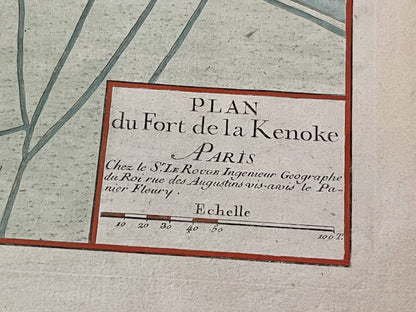 PLAN
du Fort de la Kenoke
A PARIS
Chez le Sr. LE ROUGE Ingenieur Geographe
du Roi rue des Augustins vis-avis le Pa-
nier Fleury.
Echelle
10 20 30 40 50 100 T.